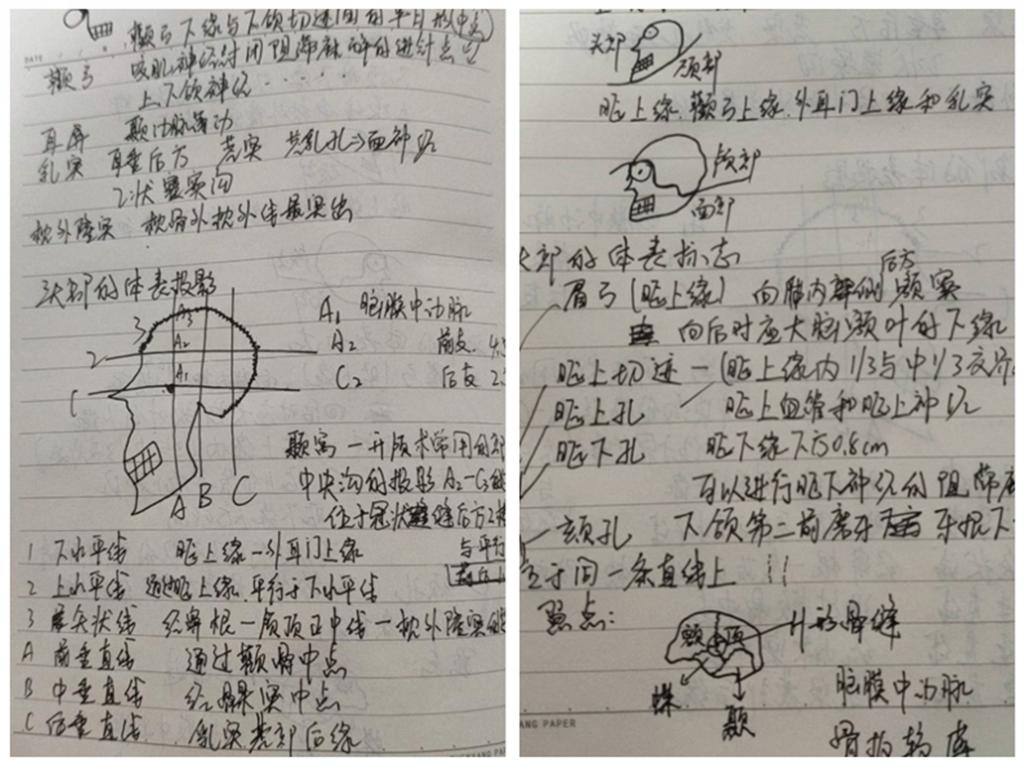 颧弓下缘与下颌切迹间的半月形(中点)
颧弓 咬肌神经封闭阻滞麻醉的进针点
上、下颌神经······
耳屏 颞动脉搏动
乳突 耳垂后方 茎突 茎乳孔→面神经
乙状窦沟
枕外隆突 枕骨外枕外侧最突出
头部的体表投影
3
A3
A2
2
A1
C
A B C
A1 脑膜中动脉
A2 前支
C2 后支
颞窝一开颅术常用的部
中央沟的投影A2-C3的
位于冠状缝后方2
1 下水平线 眶上缘一外耳门上缘
与平行
2 上水平线 通过眶上缘,平行于下水平线
3 矢状线 经鼻根一颅顶正中线一枕外隆突的
A 前垂直线 通过颧骨中点
B 中垂直线 经髁突中点
C 后垂直线 乳突基部后缘
头部
颈部
眶上缘、颧弓上缘、外耳门上缘和乳突
颅部
面部
头部的体表标志
后方
眉弓(眶上缘) 向内侧 额窦
向后对应大脑额叶的下缘
眶上切迹一(眶上缘内1/3与中1/3交界
眶上孔 眶上血管和眶上神经
眶下孔 眶下缘下方0.8cm
可以进行眶下神经的阻滞麻
颏孔 下颌第二前磨牙 牙根下
位于同一条直线上!!
翼点:
额 顶
H形骨缝
蝶
颞
脑膜中动脉
骨折
ANG PAPER